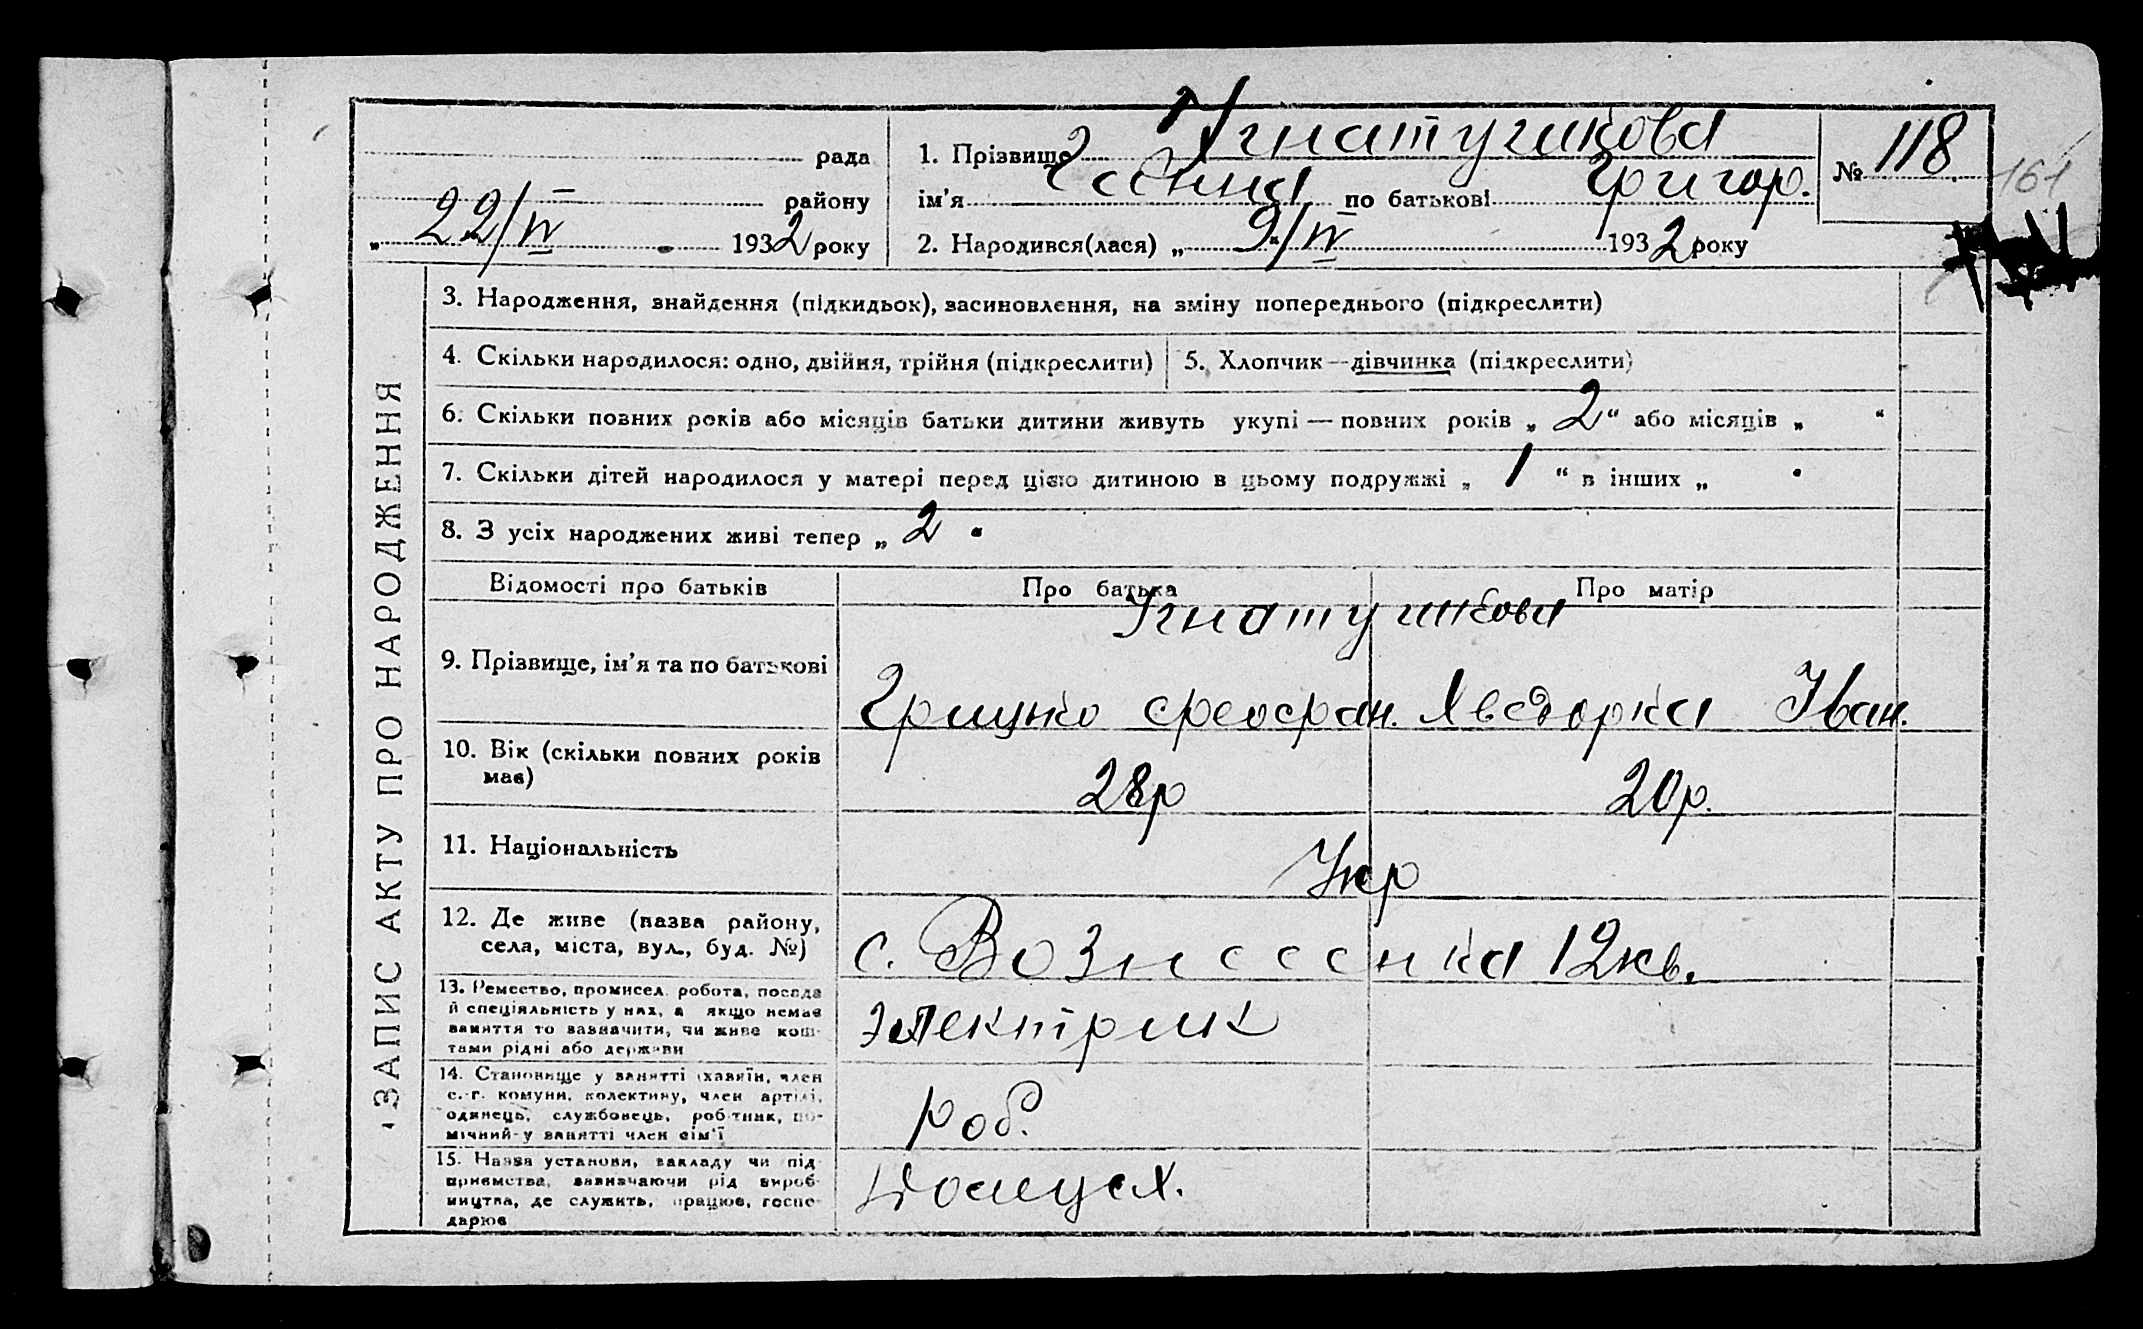 рада
району
„ 22/IV 1932 року
1. Прізвище Ігнатушкова
ім'я Ганна по батькові Григор.
2. Народився(лася) „ 9/IV 1932 року
№ 118.
161
ЗАПИС АКТУ ПРО НАРОДЖЕННЯ
3. Народження, знайдення (підкидьок), засиновлення, на зміну попереднього (підкреслити)
4. Скільки народилося: одно, двійня, трійня (підкреслити)
5. Хлопчик—дівчинка (підкреслити)
6. Скільки повних років або місяців батьки дитини живуть укупі — повних років „ 2 “ або місяців „ “
7. Скільки дітей народилося у матері перед цією дитиною в цьому подружжі „ 1 “ в інших „
8. З усіх народжених живі тепер „ 2
Відомості про батьків
Про батька
Про матір
9. Прізвище, ім'я та по батькові
Грицько Феофан.
Явдорка Іван.
10. Вік (скільки повних років має)
28р
20р.
11. Національність
Укр
12. Де живе (назва району,
села, міста, вул., буд. №)
с. Вознесенка 12кв.
13. Ремество, промисел, робота, посада
й спеціяльність у них, а якщо немає
заняття то зазначити, чи живе кош-
тами рідні або держави
электрик
14. Становище у занятті (хазяїн, член
с.-г. комуни, колективу, член артілі,
одинець, службовець, робітник, по-
мічний у занятті член сім'ї
роб.
15. Назва установи, закладу чи під-
приємства, зазначаючи рід вироб-
ництва, де служить, працює, госпо-
дарює